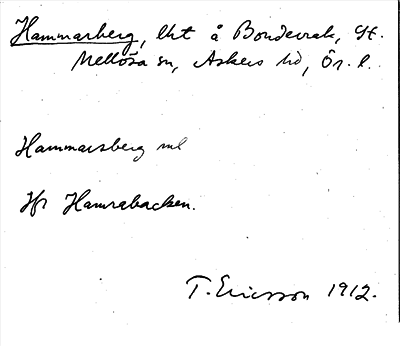 Hammarberg, lht å Bondevrak, St.
Mellösa sn, Askers hd, Ör. l.
Hammarsberg ml
Jfr Hamrabacken.
T. Ericsson 1912.